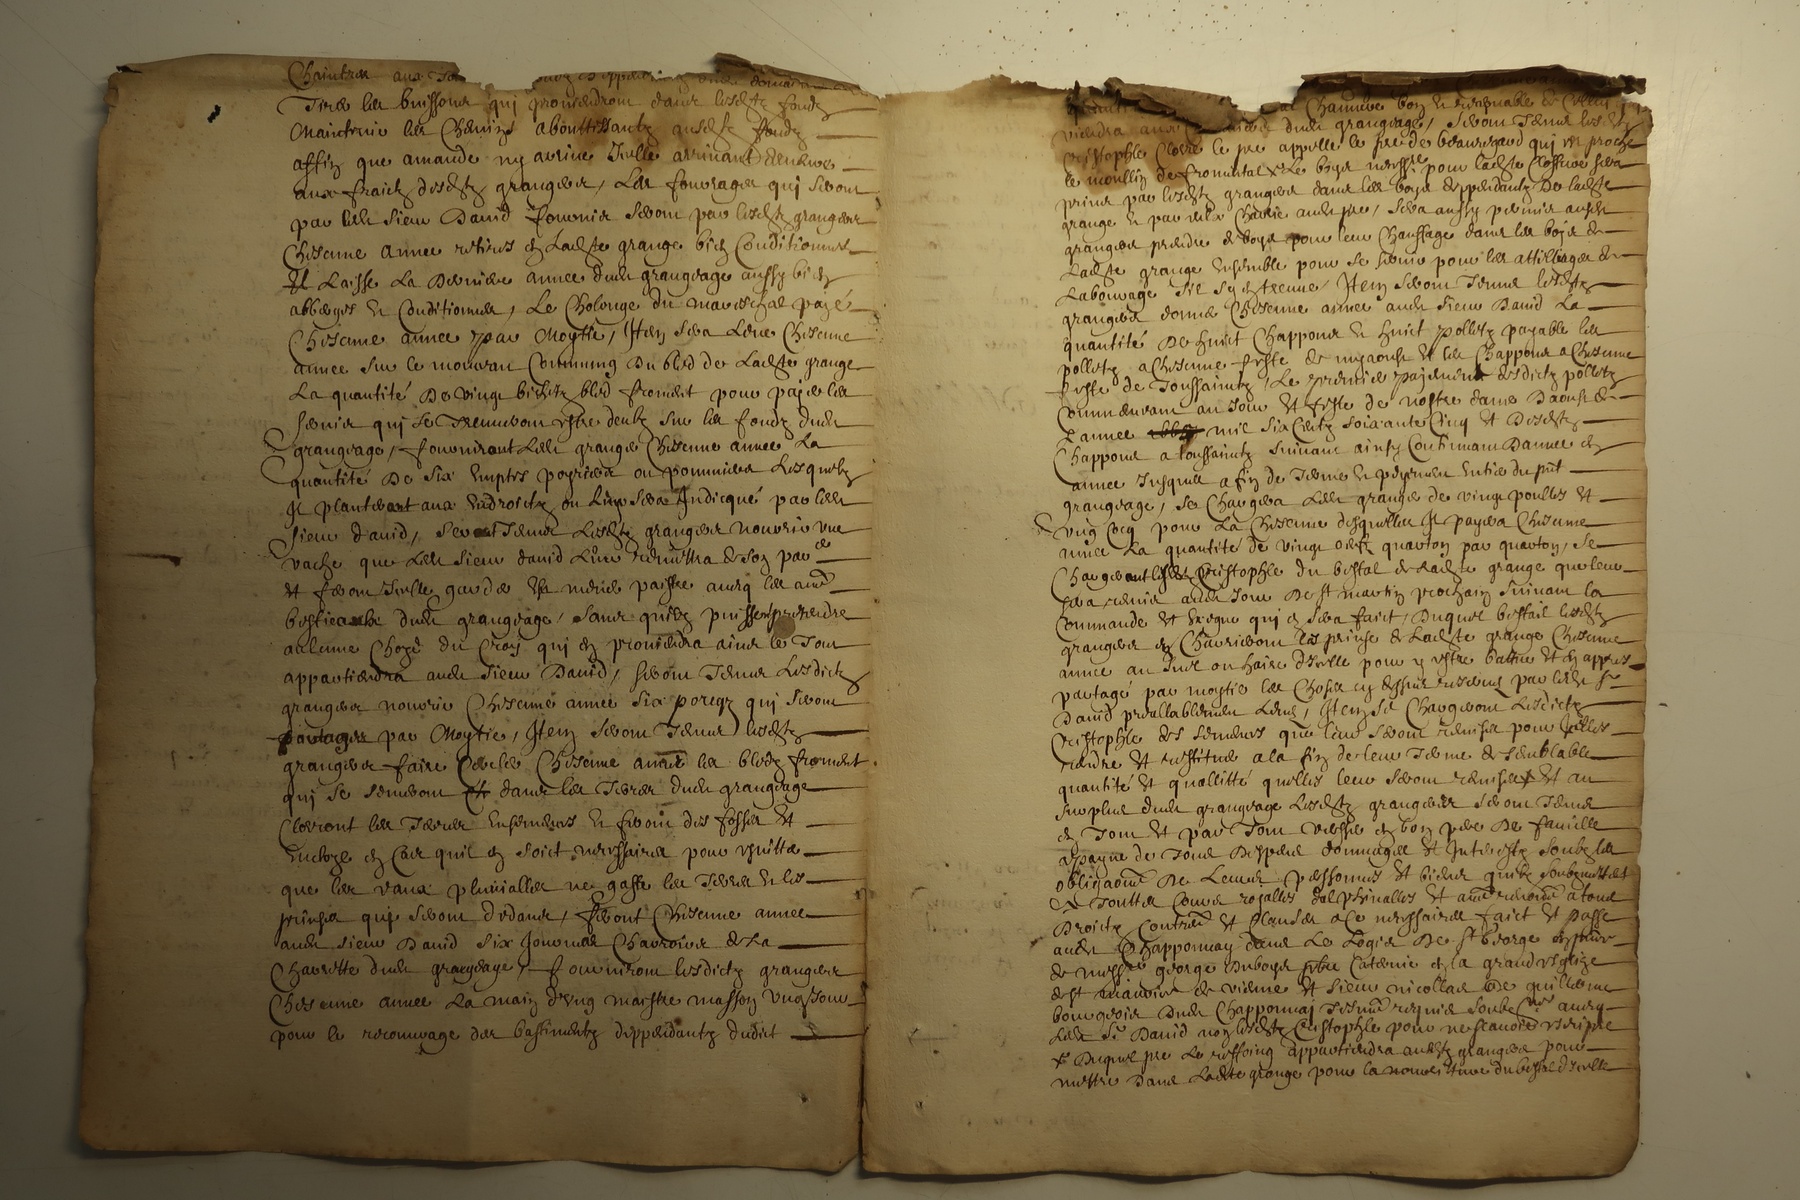 Chaintres aux
Tirer les buissons qui proviendront dans lesdits fondz
Maintenir les Chemins aboutissantz ausdits fondz
affin que amande ny arrive Icelle arrivant
aux fraictz desdits grangers, Les fourrages qui seront
par ledit sieur David fournis seront par lesdits grangers
Chescune Annee retires en Ladite grange bien Conditionnes
Et Laisse La Derniere annee dudit grangeage aussy bien
abberges et Conditionnes, Le Cholonge du mareschal payé
Chescune annee par Moytié, Item sera Leve Chescune
annee sur le monceau Commung Du bled de Ladite grange
La quantité De vingt bichetz bled froment pour payer les
servis qui se treuveront estre deubtz sur les fondz dudit
grangeage, fourniront Lesdits grangers Chescune annee La
quantité De six Emptes poyriers ou pommiers Lesquelz
Ils planteront aux Endroictz ou Leur sera Indicqué par ledit
sieur david, seront Tenus Lesdits grangers nourrir une
vache que Ledit sieur david Leur remettra de son
et seront Icelle garder et mener paistre avecq les
bestiaulx dudit grangeage, sans quilz puissent pretendre
aulcune Choze du Croys qui en proviendra ains le Tout
appartiendra audit sieur David, seront Tenus Lesdictz
grangers nourrir Chescune annee six porcqz qui seront
partages par Moytie, Item seront Tenus lesdits
grangers faire Chescune annee les bledz froment
qui se semeront dans les Terres dudit grangeage
Cloront les Terres Ensemences et feront des fosses Et
Encloze en Cas quil en soict necessaires pour esvitter
que les eaux pluvialles ne gaste les Terres et les
prinses qui seront dedans, feront Chescune annee
audit sieur David six Journees Charroires de La
Charrette dudit grangeage, fourniront lesdictz grangers
Chescune annee La main d'ung maistre masson ung Jour
pour le recouvrage des bastimentz deppendantz dudict
Chanvre bon et recepvable
viendra aux dudit grangeage, seront Tenus lesdits
Cristophle Clorre le pre appelle le pre de beauregard qui est proche
le moullin de fromental Le boys necessaire pour ladite Closture sera
prins par lesdits grangers dans les boys deppendantz De ladite
grange et par eulx Charrie audit pre, sera aussy permis ausdits
grangers prendre de boys pour leur Chauffage dans les boys de
Ladite grange Ensemble pour se servir pour les attillages de
Labourage Item seront Tenus lesdits
grangers donner Chescune annee audit sieur David La
quantité De huict Chappons et huict polletz payable les
polletz a Chescune feste de myaoust et les Chappons a Chescune
feste de Toussaintz, Le premier payement desdictz polletz
Commencant au Jour Et feste de nostre dame Daoust de
L'annee mil six Centz soixante Cinq Et Desdits
Chappons a toussaintz suivant ainsy Continuant Dannee en
annee Jusques a fin de Terme et payement Entier du pnt
grangeage, se Chargera Ledit granger de vingt poulles Et
ung Cocq pour La Chescune desquelles Il payera Chescune
annee La quantité de vingt oeufz quarton par quarton, se
Chargeront lesdits Cristophle du bestal de Ladite grange que leur
sera remis audit Jour De st martin prochain suivant la
Commande Et prisee qui en sera faict, Duquel bestail lesdits
grangers en Charrieront les prinses de Ladite grange Chescune
annee au suol ou haire d'icelle pour y estre battue Et en appres
partagé par moytie les Choses cy dessus reserves par ledit sr
David preallablement Leves, Item se Chargeront Lesdictz
Cristophle des semences que leur seront remises pour Icelles
rendre Et restituer a la fin de leur Terme de semblable
quantité Et quallitté quelles leur seront remises Et au
surplus dudit grangeage Lesdits grangers seront Tenus
en Tout Et par Tout vivre en bon pere De famille
a payne de Tous Despens dommages Et Interestz soubz les
obligaons De Leurs personnes Et biens quilz soubzmettent
a Touttes Cours royalles dalphinalles Et
Droictz Contraires Et Clauses a Ce necessaires faict Et Passé
audit Chapponnay dans Le Logis De st george
de messire george Duboys pbre en la grand esglize
de st de vienne Et sieur nicollas De guillerme
bourgeois dudit Chapponnay Tesmoins requis avecq
Ledit sr David non lesdits Cristophle pour ne scavoir escripre
Duquel pre Le reffoing appartiendra ausdits grangers pour
mettre Dans Ladite grange pour la nourriture du bestal d'icelle